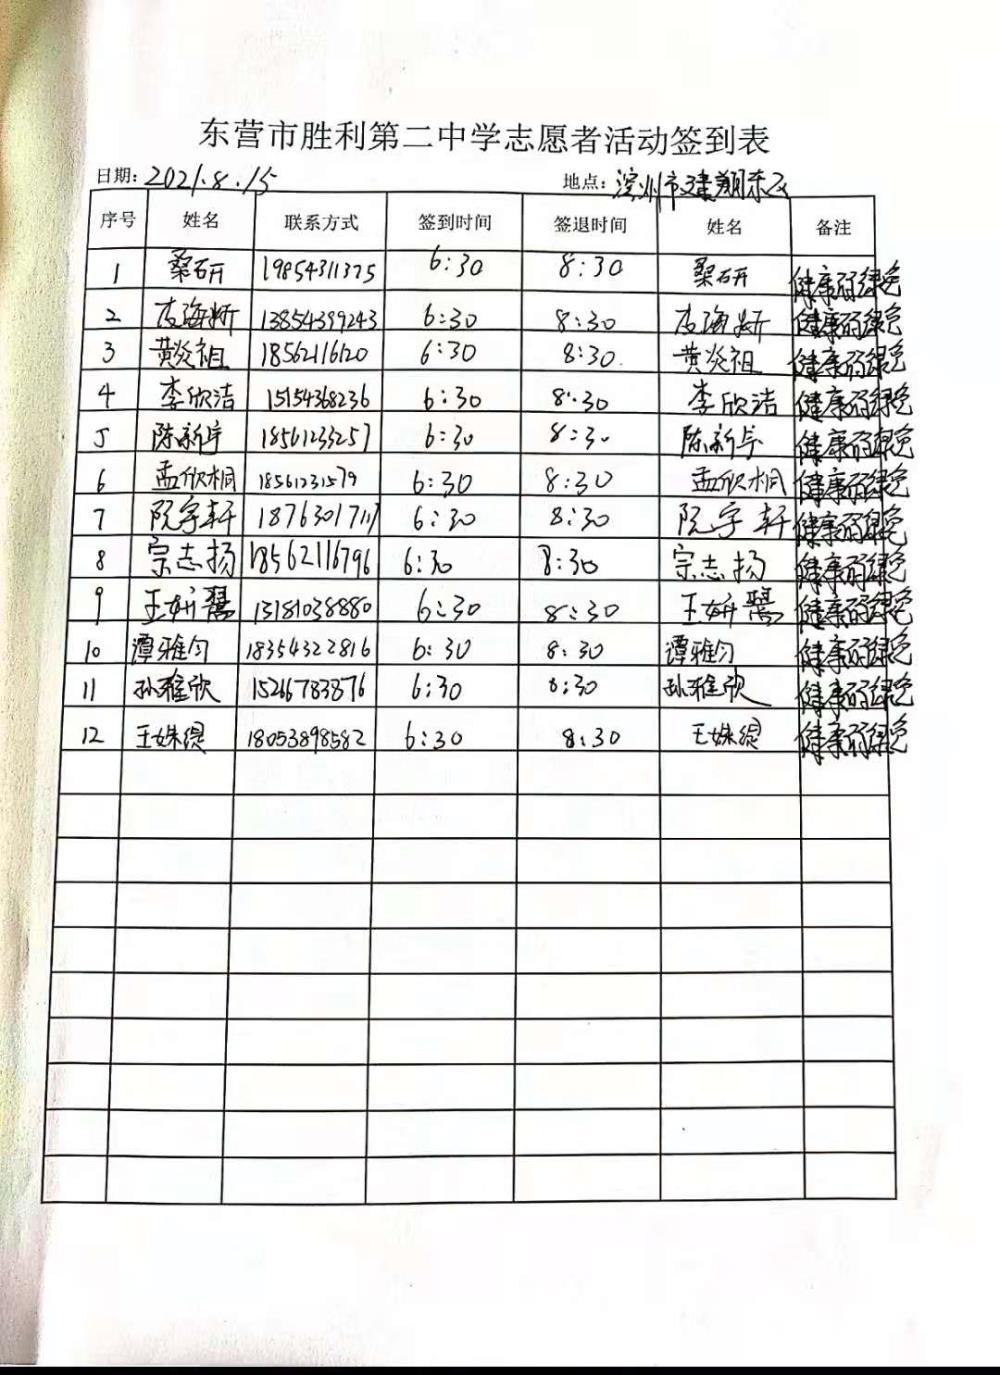 东营市胜利第二中学志愿者活动签到表
日期: 2021.8.15 地点: 滨州市建翔东区
序号 姓名 联系方式 签到时间 签退时间 姓名 备注
1 桑研 19854311375 6:30 8:30 桑研 健康码绿色
2 海妍 13854399243 6:30 8:30 海妍 健康码绿色
3 黄炎祖 18562116120 6:30 8:30. 黄炎祖 健康码绿色
4 李欣洁 15154368236 6:30 8:30 李欣洁 健康码绿色
5 陈新宇 18561233257 6:30 8:30 陈新宇 健康码绿色
6 孟欣桐 18561231579 6:30 8:30 孟欣桐 健康码绿色
7 阮宇轩 18763017117 6:30 8:30 阮宇轩 健康码绿色
8 宗志扬 18562116796 6:30 8:30 宗志扬 健康码绿色
9 王妍翯 13181038880 6:30 8:30 王妍翯 健康码绿色
10 谭雅匀 18354322816 6:30 8:30 谭雅匀 健康码绿色
11 孙雅欣 15266783876 6:30 8:30 孙雅欣 健康码绿色
12 王姝缇 18053898582 6:30 8:30 王姝缇 健康码绿色